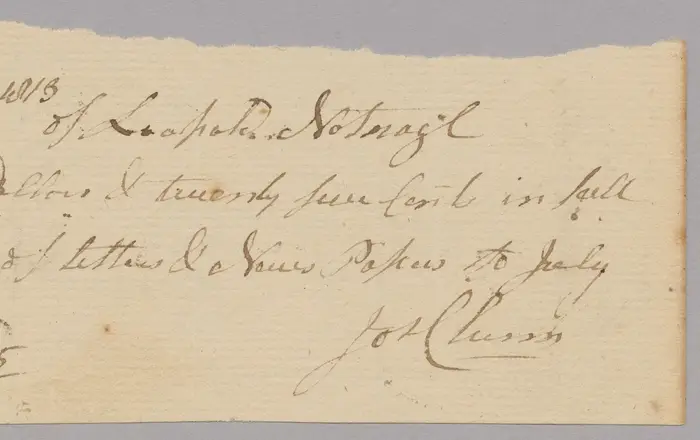 1813
of Leopold Notnagil
Dollars & twenty five Cent in full
of letters & News Papers to July
Jos Clunn
5